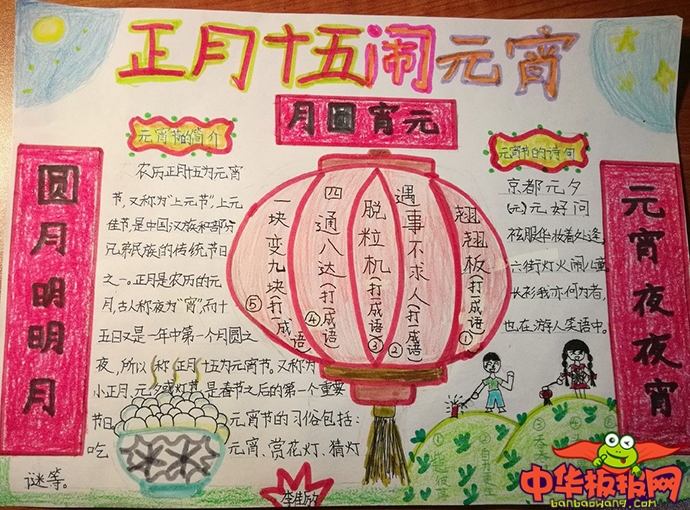 正月十五闹元宵
月圆宵元
圆月明明月
元宵夜夜宵
元宵节的简介
农历正月十五为元宵
节，又称为“上元节”上元
佳节，是中国汉族和部分
兄弟民族的传统节日
之一。正月是农历的元
月，古人称夜为“宵”，而十
五日又是一年中第一个月圆之
夜，所以称正月十五为元宵节。又称为
小正月、元夕或灯节，是春节之后的第一个重要
节日 元宵节的习俗包括：
吃 元宵、赏花灯、猜灯
谜等。
翘翘板（打一成语）①
遇事不求人（打一成语）②
脱粒机（打一成语）③
四通八达（打一成语）④
一块变九块（打一成语）⑤
元宵节的诗句
京都元夕
（元）元好问
袨服华妆着处逢，
六街灯火闹儿童
长衫我亦何为者，
也在游人笑语中。
中华板报网
banbaowang.com